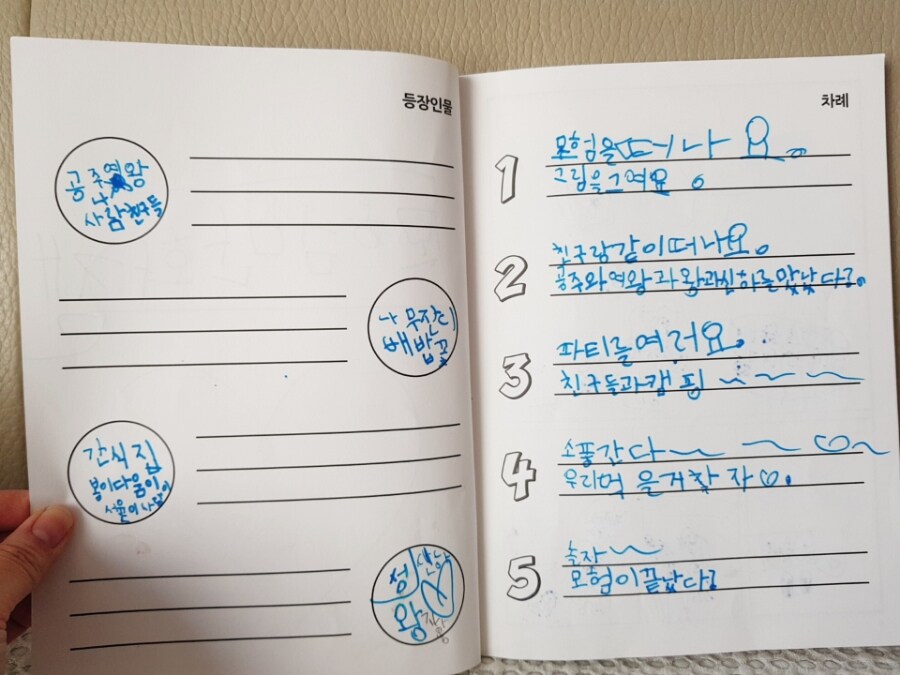 등장인물
공주여왕
나
사람친구들
나무잔디
배밥꽃
간식집
봄이다움이
서울이사람이
성
왕
차례
1
모험을떠나요.
그림을그여요.
2
친구랑같이떠나요.
공주와여왕과왕과신하를맞났다.
3
파티를여러요.
친구들과캠핑~~~
4
소풍간다~~♡~
우리먹을거찾자♡.
5
축자~
모험이끝났다!